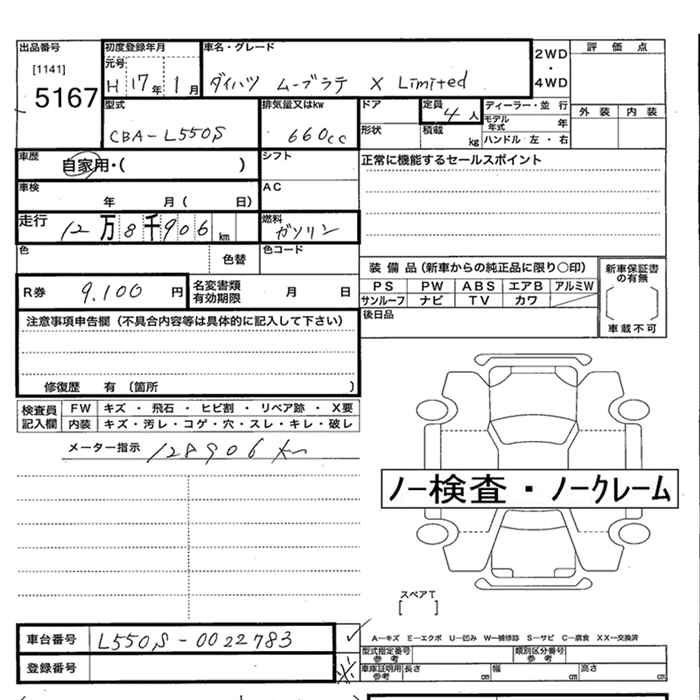 出品番号
[1141]
5167
初度登録年月
元号
H 17年 1月
車名・グレード
ダイハツ ムーブラテ X Limited
2WD
・
4WD
評価点
外装 内装
型式
CBA-L550S
排気量又はkw
660cc
ドア
定員
4人
形状
積載
kg
ディーラー・並行
モデル年式 年
ハンドル 左・右
車歴
自家用・( )
シフト
正常に機能するセールスポイント
車検
年 月( 日)
AC
走行
12万8千906km
燃料
ガソリン
色
色替
色コード
装備品(新車からの純正品に限り〇印)
PS PW ABS エアB アルミW
サンルーフ ナビ TV カワ
新車保証書の有無
[ ]
車載不可
R券
9.100円
名変書類有効期限
月 日
後日品
注意事項申告欄(不具合内容等は具体的に記入して下さい)
修復歴 有(箇所 )
検査員記入欄
FW キズ・飛石・ヒビ割・リペア跡・X要
内装 キズ・汚レ・コゲ・穴・スレ・キレ・破レ
メーター指示 128906km
ノー検査・ノークレーム
スペアT
[ ]
車台番号
L550S-0022783
登録番号
A―キズ E―エクボ U―凹み W―補修跡 S―サビ C―腐食 XX―交換済
型式指定番号
参考
類別区分番号
参考
車庫証明用
参考
長さ cm
幅 cm
高さ cm